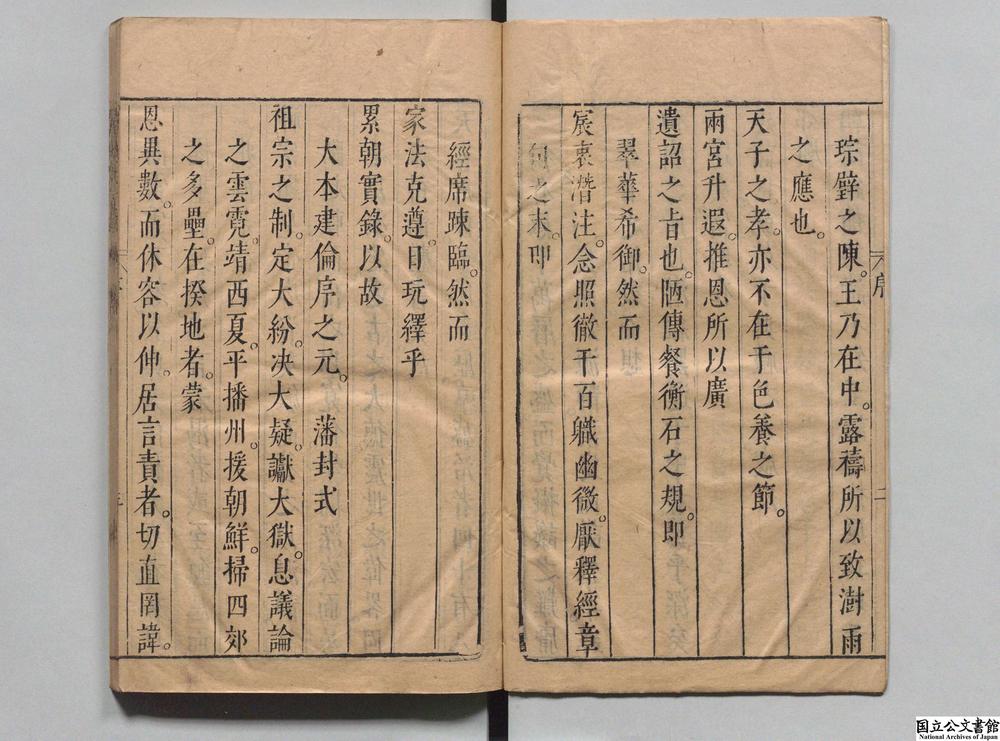 琮璧之陳。王乃在中。露禱所以致澍雨
之應也。
天子之孝。亦不在于色養之節。
兩宮升遐。推恩所以廣
遺詔之㫖也。陋傳餐衡石之規。即
翠華希御。然而
宸衷潛注。念照徹于百職幽微。厭釋經章
句之末。叩
序
二
經席踈臨。然而
家法克遵。日玩繹乎
累朝實錄。以故
大本建倫序之元。藩封式
祖宗之制。定大紛。决大疑。讞大獄。息議論
之雲霓。靖西夏。平播州。援朝鮮。掃四郊
之多壘。在揆地者。蒙
恩異數。而休容以伸。居言責者。切直罔諱。
国立公文書館
National Archives of Japan